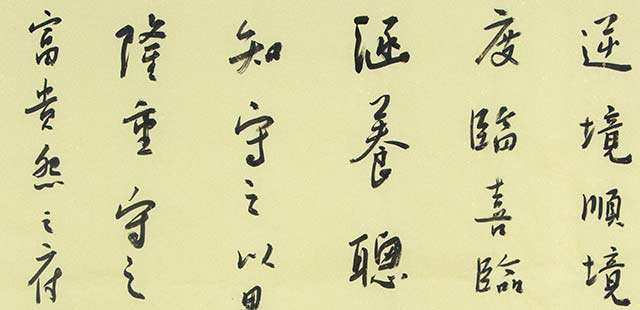 逆境順境
度臨喜臨
涵養聰
知守之以
隆重守之
富貴怨之府